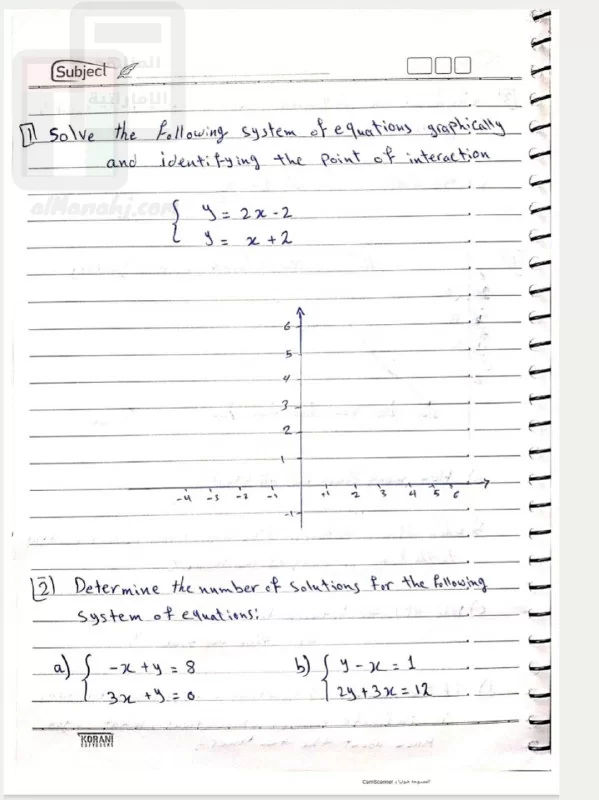 المناهج
الإماراتية
Subject
[1] Solve the following system of equations graphically
and identifying the point of interaction
almanahj.com
y = 2x - 2
y = x + 2
6
5
4
3
2
1
-4 -3 -2 -1 +1 2 3 4 5 6
-1
[2] Determine the number of solutions for the following
system of equations:
a) { -x + y = 8
3x + y = 0
b) { y - x = 1
2y + 3x = 12
KORANI
CamScanner